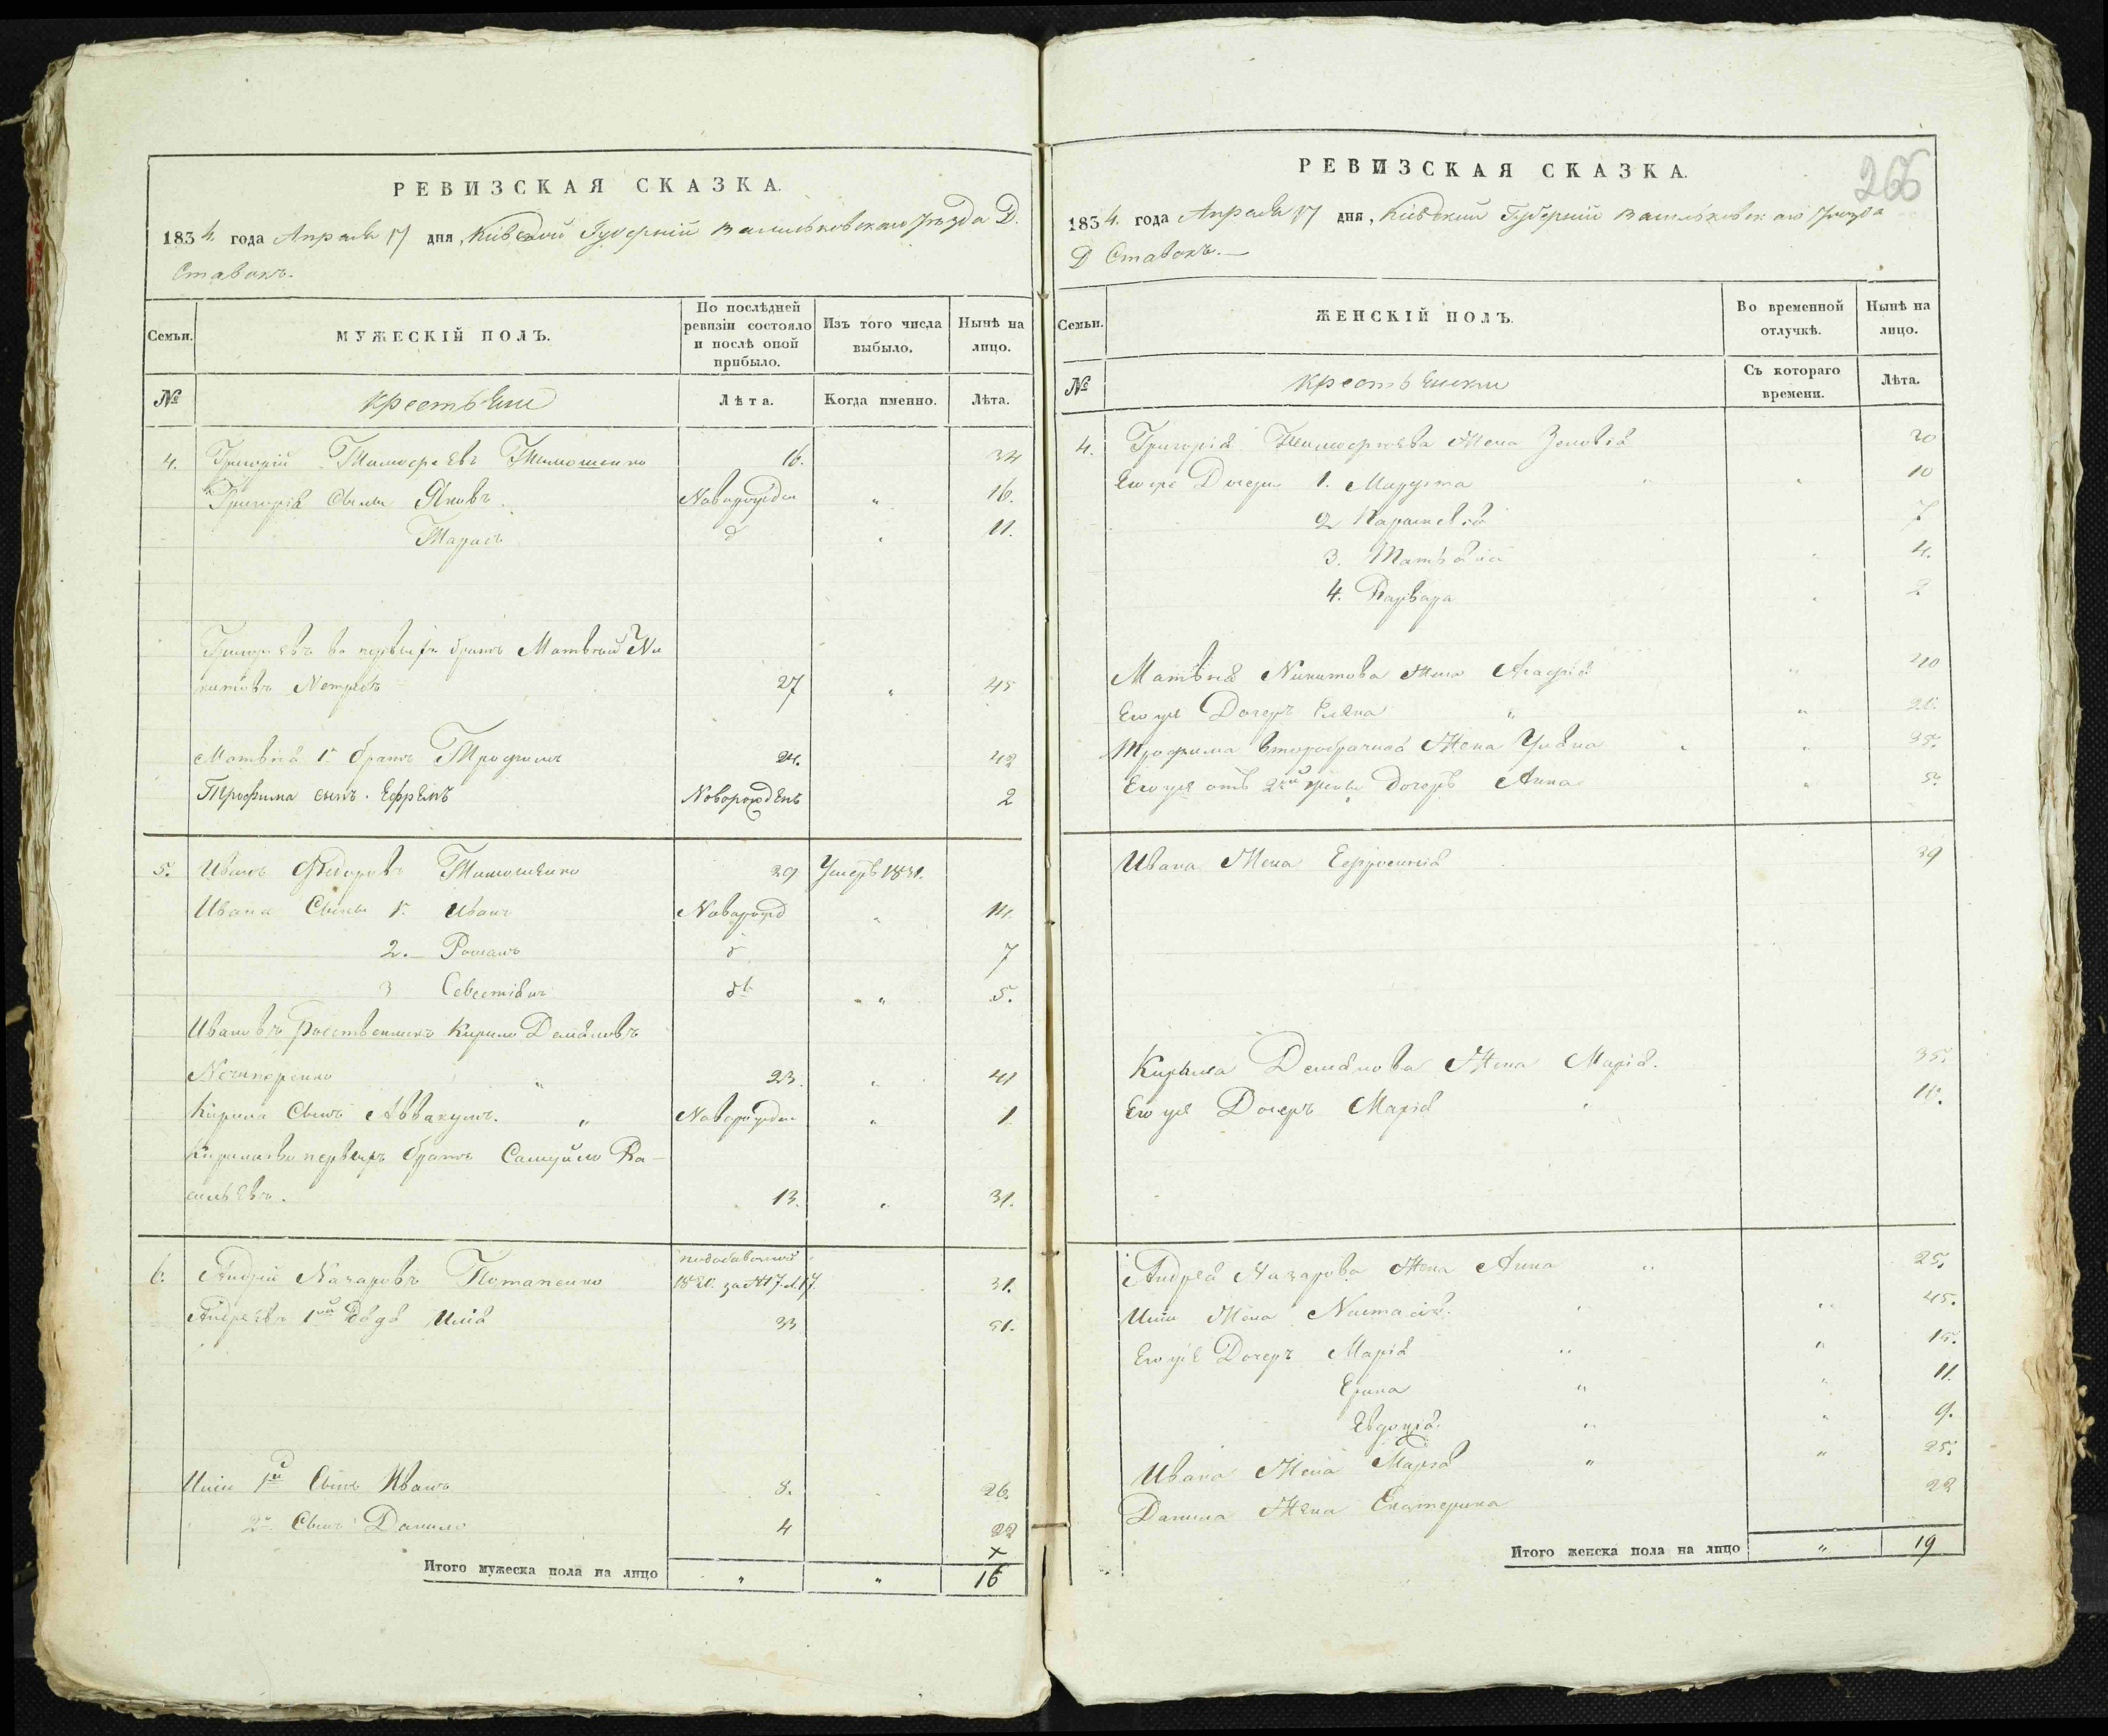 РЕВИЗСКАЯ СКАЗКА.
1834. года Апреля 17 дня, Кіевской Губерніи Васильковскаго Уѣзда Д.
Ставокъ.
Семьи.
МУЖЕСКІЙ ПОЛЪ.
По послѣдней ревизіи состояло и послѣ оной прибыло.
Изъ того числа выбыло.
Нынѣ на лицо.
№
Крестьяне
Лѣта.
Когда именно.
Лѣта.
4. Григорій Тимофеевъ Тимошенко 16. 34
Григорія Сыны Яковъ. Новорожден " 16.
Тарасъ д 11.
Григорьевъ братъ Матвѣй Ни
китовъ 27 " 45
Матвѣя 1й братъ Трофимъ 24. 42
Трофима сынъ. Ефремъ Новорожденъ 2
5. Иванъ Федоровъ Тимошенко 29 Умеръ 1831.
Ивана Сыны 1. Иванъ Новорожд " 14.
2. Романъ д 7
3 Севестіанъ " 5.
Ивановъ Кирило Демяновъ
Нечипоренко " 23. 41
Кирила Сынъ Аввакумъ. " Новорожден " 1
братъ Самуйло Ва-
сильевъ. 13. 31.
6. Андрій Назаровъ Потапенко 31.
Андреевъ 1й дядя Илія 33 51.
Иліи 1й Сынъ Иванъ 8. 26.
2й Сынъ Данило 4 22
х
Итого мужеска пола на лицо " " 16
РЕВИЗСКАЯ СКАЗКА.
266
1834. года Апреля 17 дня, Кіевский Губерніи Васильковскаго Уѣзда
Д Ставокъ.—
Семьи.
ЖЕНСКІЙ ПОЛЪ.
Во временной отлучкѣ.
Нынѣ на лицо.
№
Крестьянки
Съ котораго времени.
Лѣта.
4. Григорія Тимофеева Жена Зеновія 30
Его же Дочери 1. Марфта 10
2 Параскевія 7
3. Матвѣя 4.
4. Варвара 2
Матвѣя Никитова Жена Агафія 40
Его же Дочерь Еляна "
Трофима второбрачная Жена Уляна 35.
Его же отъ 2ой жены дочерь Анна 5.
Ивана Жена Ефросинія 39
Кирыла Демянова Жена Марія. 35.
Его же Дочерь Марія
Андрея Назарова Жена Анна " 25.
Иліи Жена Настасія. 45.
Его же Дочерь Марія " 15.
Ерина " 11.
Евдокія 9.
Ивана Жена Марія " 25.
Данила Жена Екатерина 22
Итого женска пола на лицо " 19